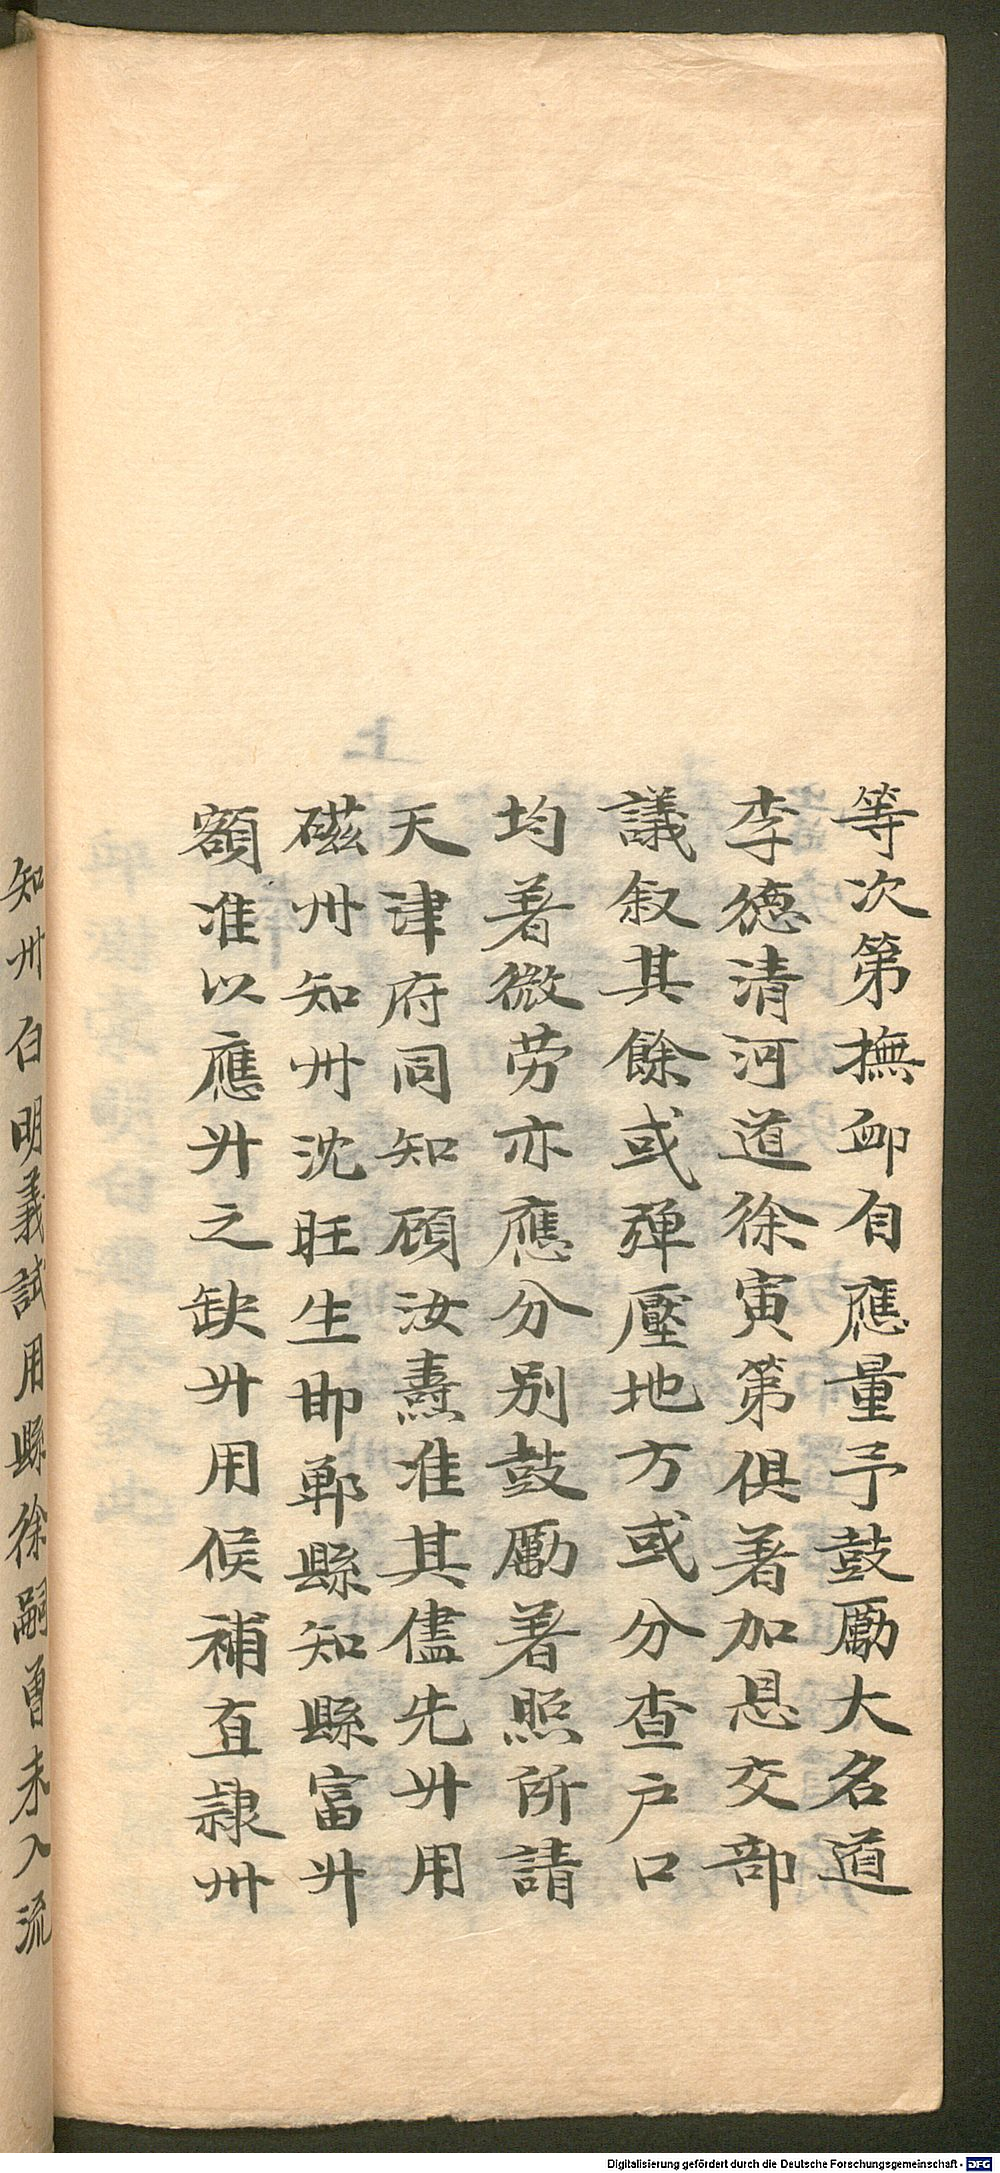 等次第撫卹自應量予鼓勵大名道
李德清河道徐寅第俱著加恩交部
議叙其餘或弹壓地方或分查戶口
均著微劳亦應分别鼓勵著照所請
天津府同知顧汝燾准其儘先升用
磁州知州沈旺生邯鄲縣知縣富升
額准以應升之缺升用候補直隸州
知州白明義試用縣徐嗣曾未入流
Digitalisierung gefördert durch die Deutsche Forschungsgemeinschaft - DFG